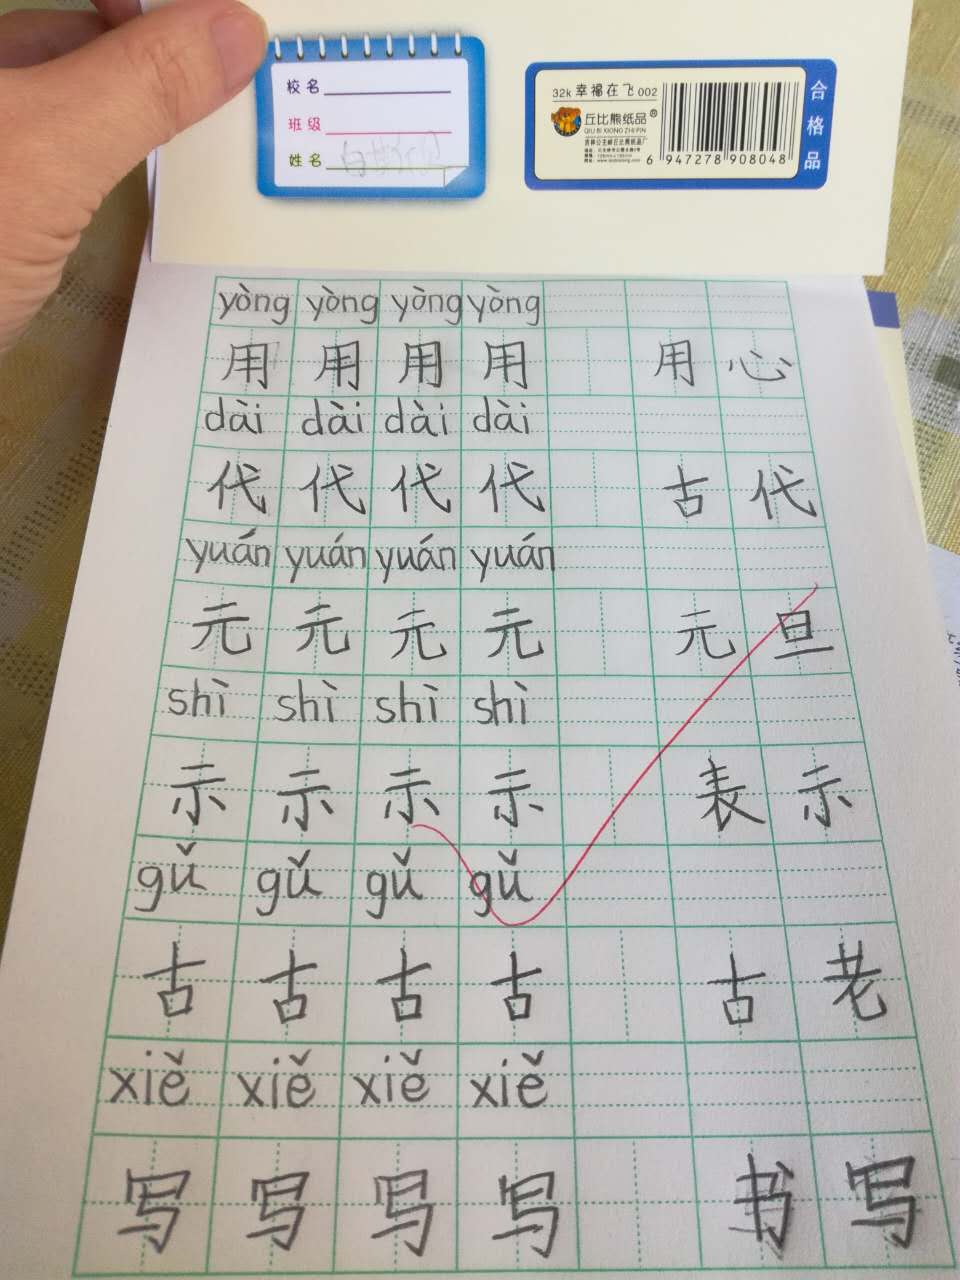 校名
班级
姓名
32k 幸福在飞 002
丘比熊纸品®
QIU BI XIONG ZHI PIN
6 947278 908048
合格品
yòng yòng yòng yòng
用 用 用 用 用 心
dài dài dài dài
代 代 代 代 古 代
yuán yuán yuán yuán
元 元 元 元 元 旦
shì shì shì shì
示 示 示 示 表 示
gǔ gǔ gǔ gǔ
古 古 古 古 古 老
xiě xiě xiě xiě
写 写 写 写 书 写